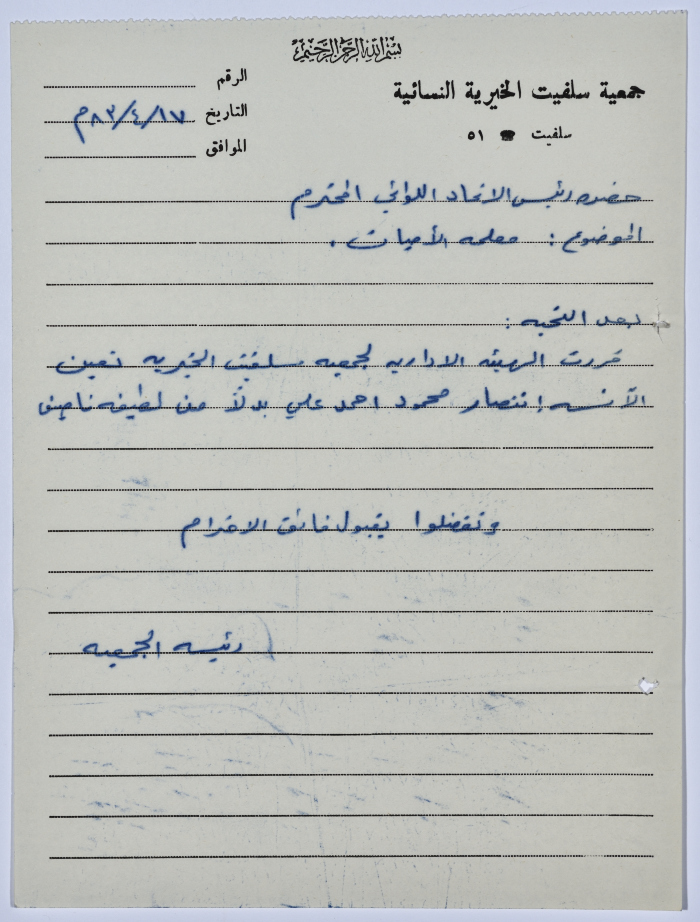 بسم الله الرحمن الرحيم
جمعية سلفيت الخيرية النسائية
سلفيت ☎ ٥١
الرقم
التاريخ ١٧/٤/٨٣م
الموافق
حضره رئيس الاتحاد اللوائي المحترم
الموضوع : معلمه الأميات .
بعد التحيه :
قررت الهيئه الاداريه لجمعيه سلفيت الخيريه تعين
الآنسه إنتصار محمود احمد علي بدلاً من لطيفه ناصيف
وتفضلوا بقبول فائق الاحترام
رئيسه الجمعيه